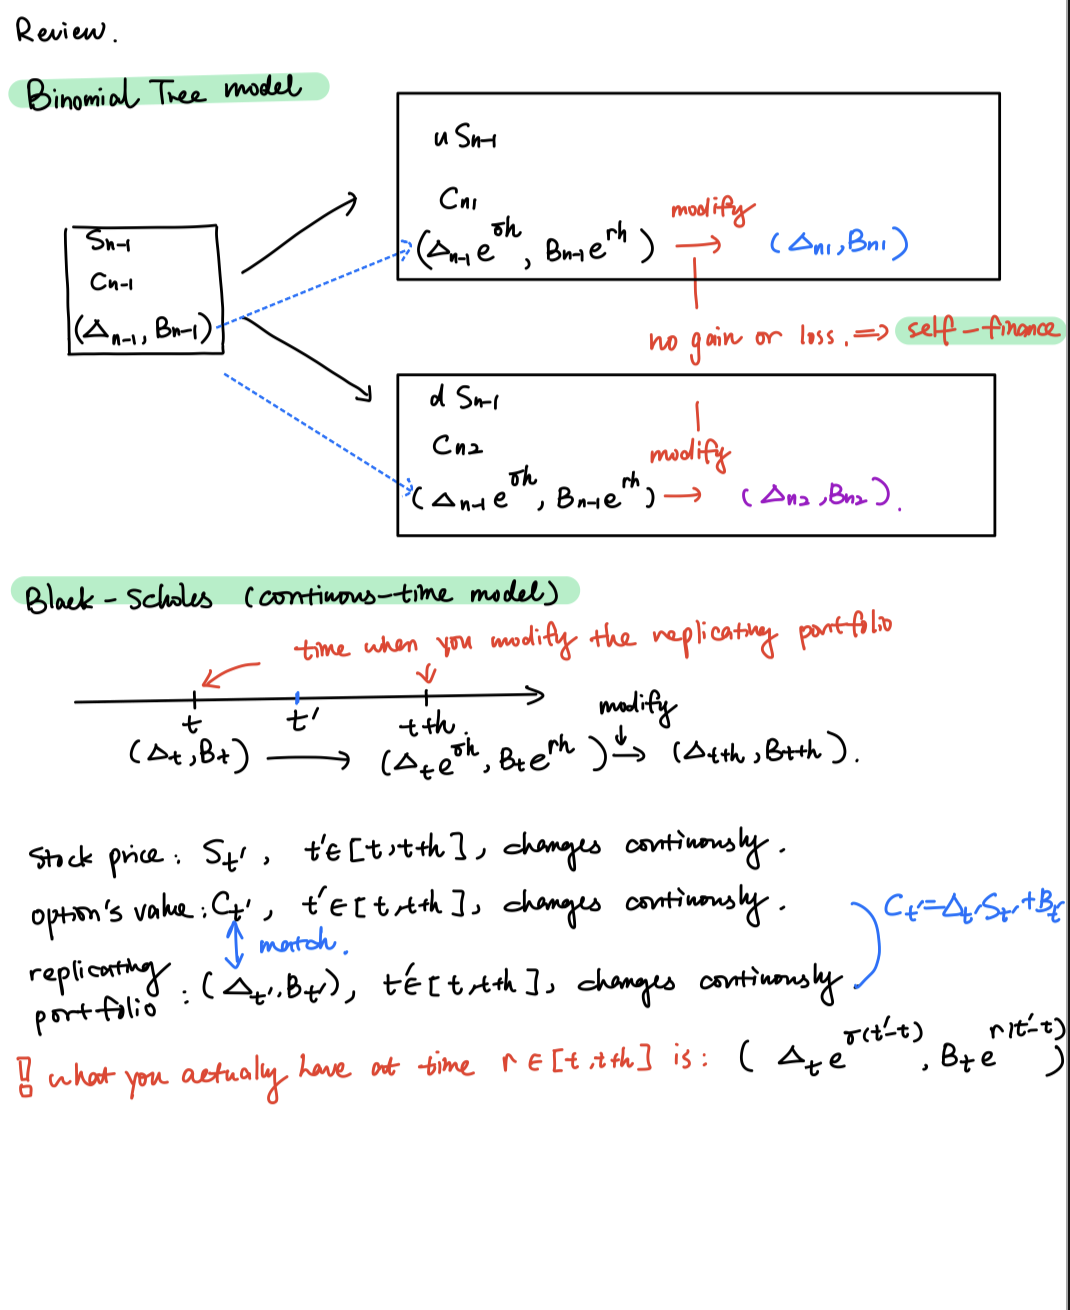 Review.
Binomial Tree model
Sn-1
Cn-1
(Δn-1, Bn-1)
u Sn-1
Cn1
(Δn-1 e^δh, Bn-1 e^rh) modify → (Δn1, Bn1)
no gain or loss. => self-finance
d Sn-1
Cn2
(Δn-1 e^δh, Bn-1 e^rh) modify → (Δn2, Bn2).
Black-Scholes (continous-time model)
time when you modify the replicating portfolio
t t' t+h.
modify
(Δt, Bt) → (Δt e^δh, Bt e^rh) → (Δt+h, Bt+h).
Stock price: St', t'∈[t, t+h], changes continously.
option's value: Ct', t'∈[t, t+h], changes continously.
match.
Ct'=Δt'St'+Bt'
replicating portfolio: (Δt', Bt'), t'∈[t, t+h], changes continously
! what you actually have at time r∈[t, t+h] is: (Δt e^δ(t'-t), Bt e^r(t'-t))